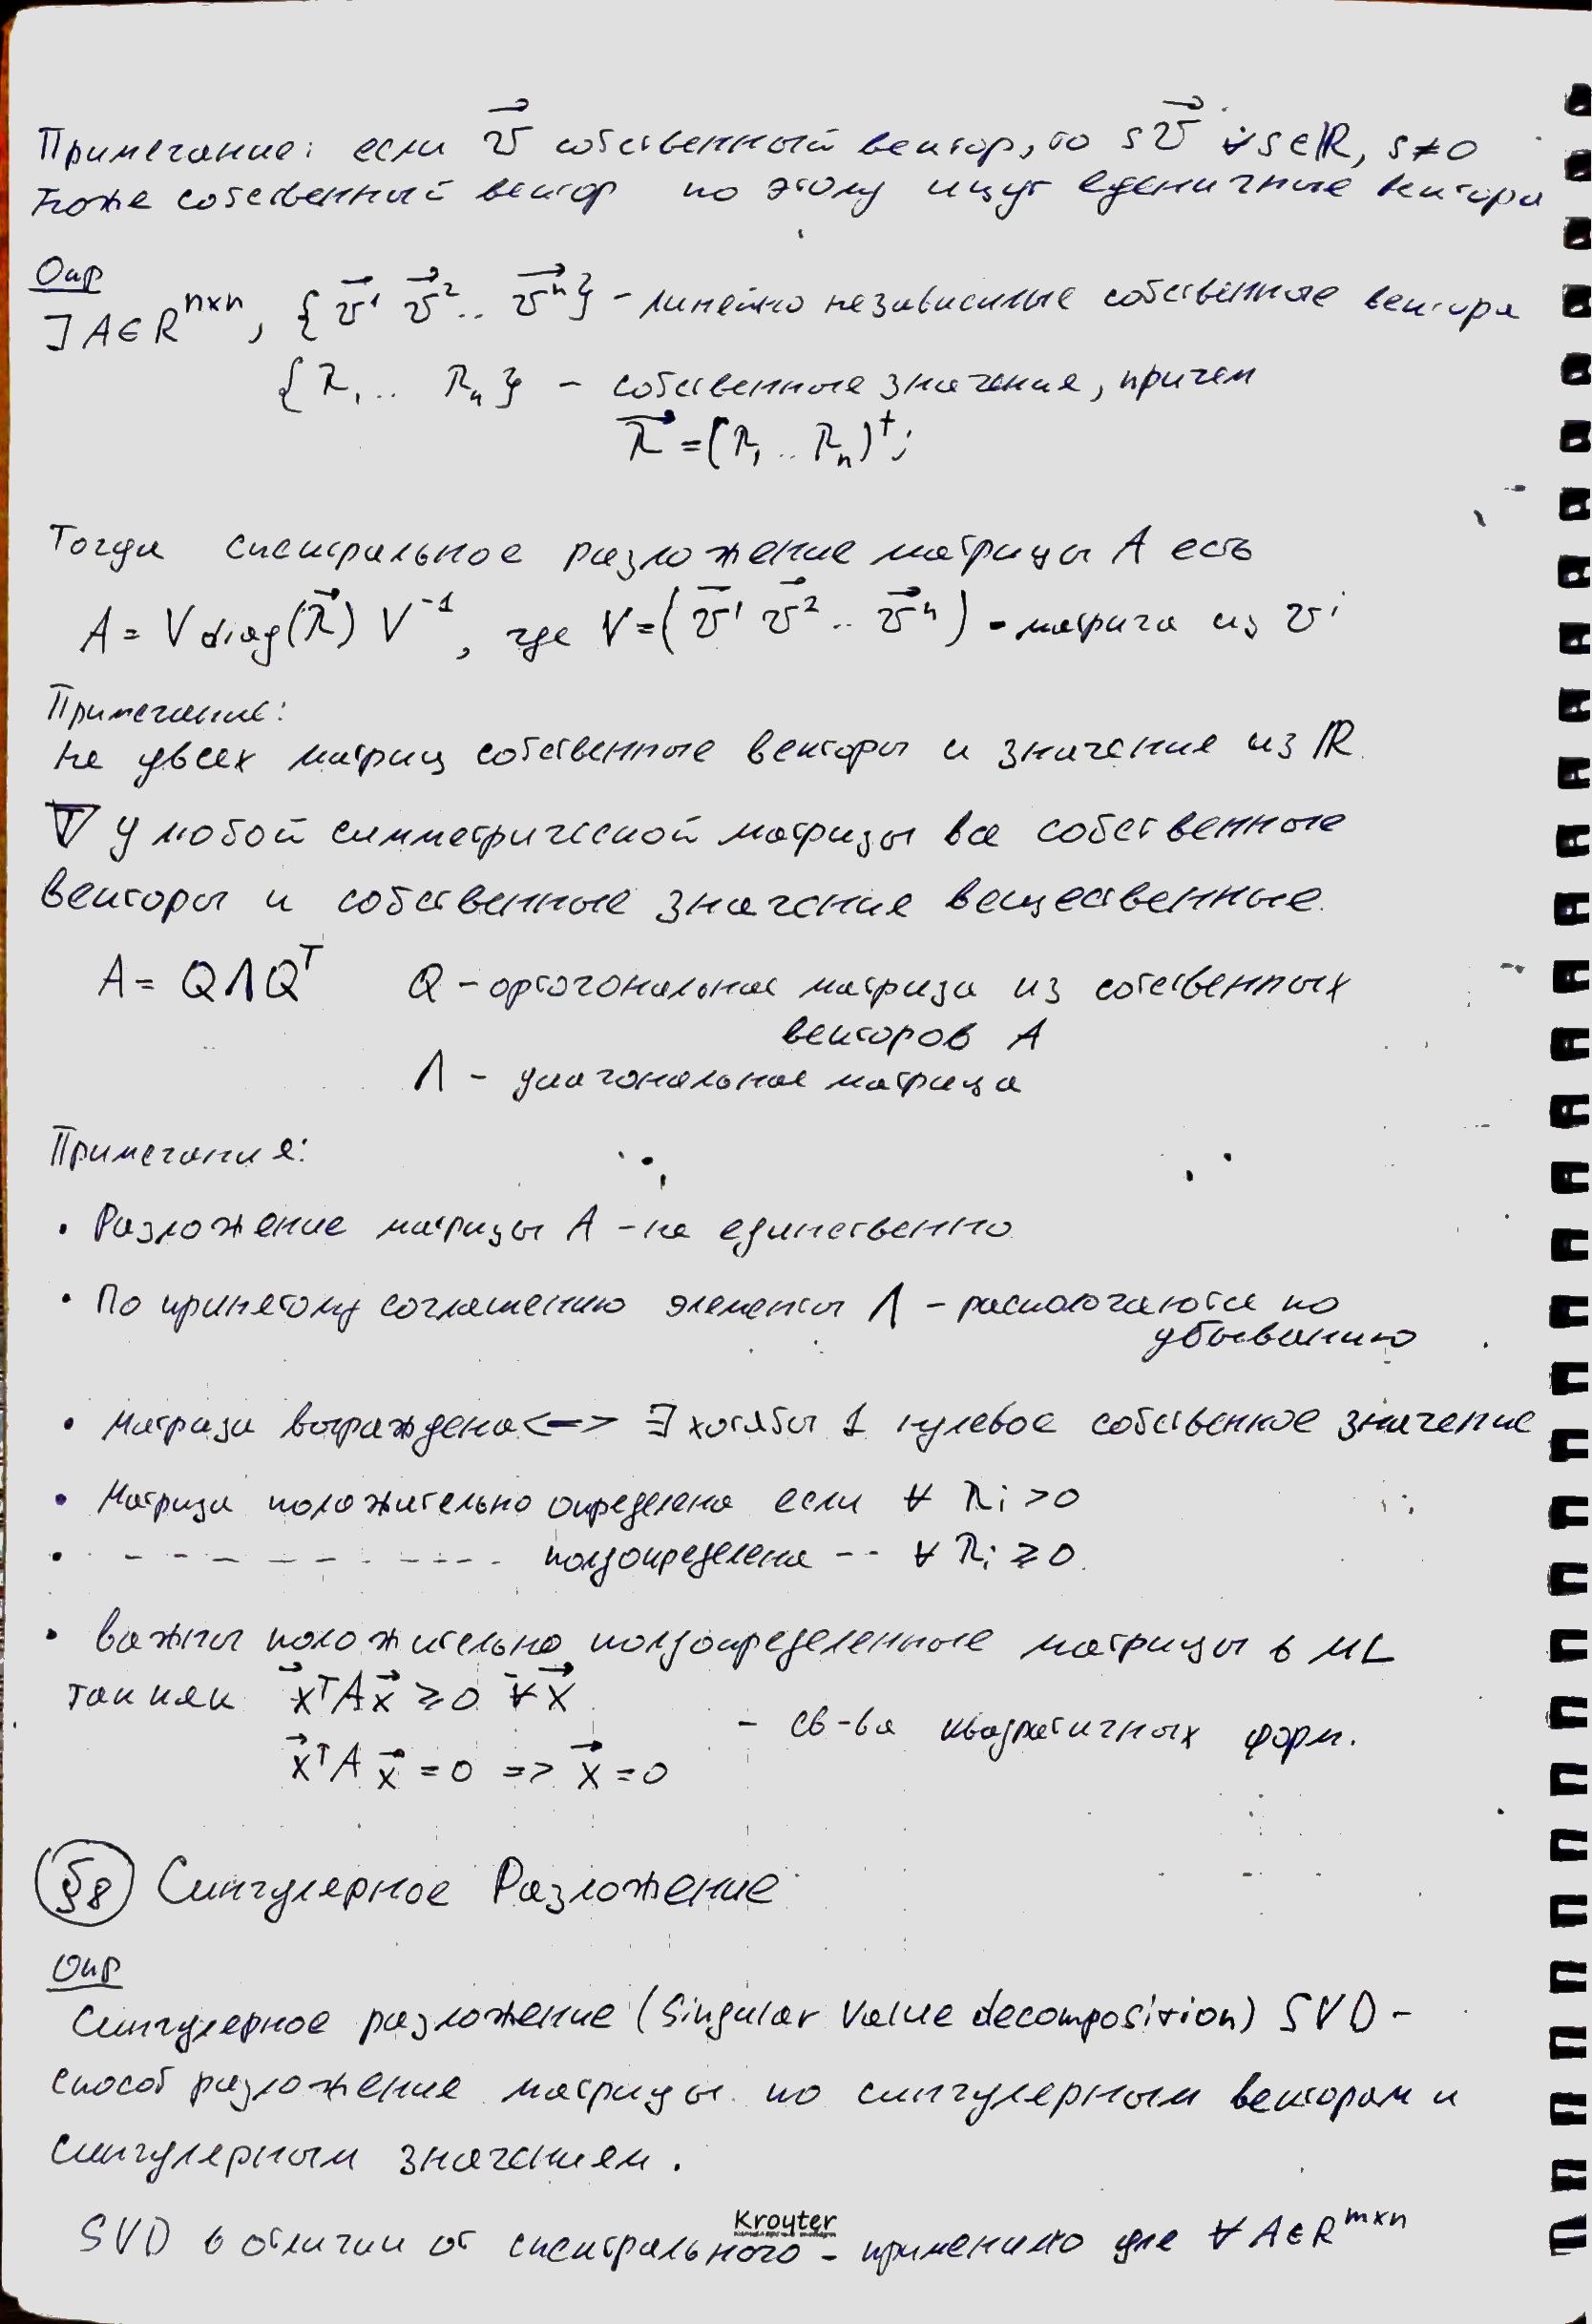 Примечание: если v⃗ собственный вектор, то sv⃗ ∀s∈ℝ, s≠0
тоже собственный вектор по этому ищут еденичные вектора
Опр
∃ A∈R^{n×n}, {v⃗¹ v⃗² .. v⃗ⁿ} - линейно независимые собственные вектора
{λ₁ .. λₙ} - собственные значения, причем
λ⃗ = (λ₁ .. λₙ)^T;
Тогда спектральное разложение матрицы A есть
A = V diag(λ⃗) V⁻¹, где V = (v⃗¹ v⃗² .. v⃗ⁿ) - матрица из vⁱ
Примечание:
Не у всех матриц собственные векторы и значения из ℝ.
∇ У любой симметрической матрицы все собственные
векторы и собственные значения вещественные.
A = QΛQ^T Q - ортогональная матрица из собственных
векторов A
Λ - диагональная матрица
Примечания:
• Разложение матрицы A - не единственно
• По принятому соглашению элементы Λ - распологаются по
убыванию
• Матрица вырождена <=> ∃ хотябы 1 нулевое собственное значение
• Матрица положительно определена если ∀ λi > 0
• - - - - - - - - - полуопределена -- ∀ λi ≥ 0.
• Важны положительно полуопределенные матрицы в ML
так как x⃗^T A x⃗ ≥ 0 ∀ x⃗
- св-ва квадратичных форм.
x⃗^T A x⃗ = 0 => x⃗ = 0
§8 Сингулярное Разложение
Опр
Сингулярное разложение (Singular Value decomposition) SVD -
способ разложения матрицы по сингулярным векторам и
сингулярным значениям.
Krouter
SVD в отличии от спектрального - применимо для ∀ A∈R^{m×n}